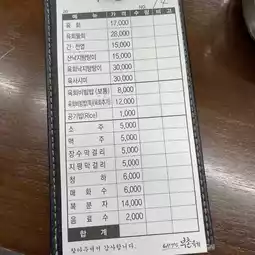 NO.
메뉴 가격 수량 비고
육회 17,000
육회물회 28,000
간·천엽 15,000
산낙지탕탕이 15,000
육회낙지탕탕이 30,000
육사시미 30,000
육회비빔밥 (보통) 8,000
육회비빔밥(특)(육회추가) 12,000
공기밥(Rice) 1,000
소주 5,000
맥주 5,000
장수막걸리 5,000
지평막걸리 5,000
청하 6,000
매화수 6,000
복분자 14,000
음료수 2,000
합계
찾아주셔서 감사합니다.